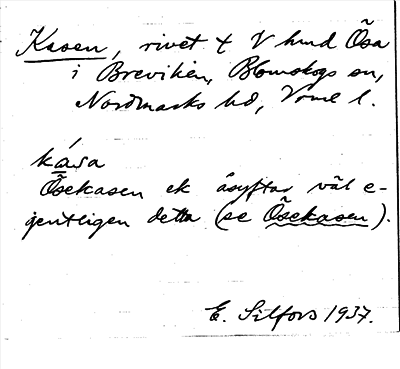 Kasen, rivet t V hmd Õsa
i Breviken, Blomskogs sn,
Nordmarks hd, Vrml l.
kása
Õsekasen ek åsyftas väl e-
gentligen detta (se Õsekasen).
E. Silfors 1937.